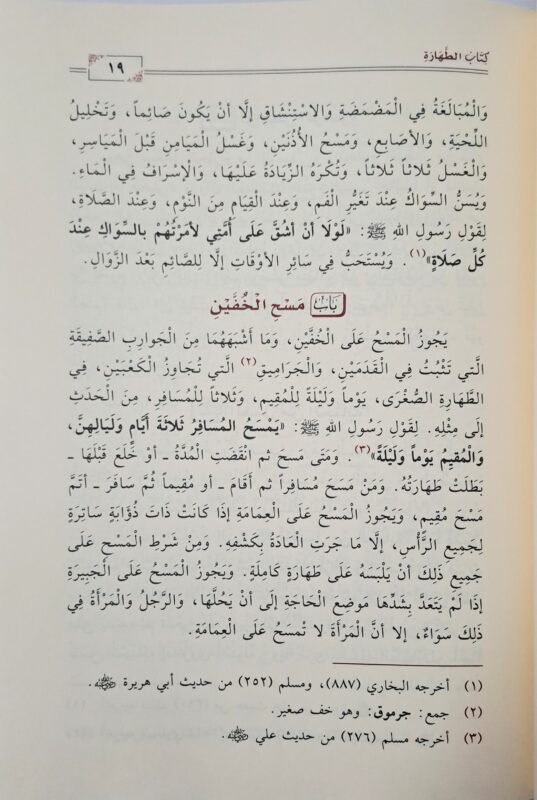 كِتَابُ الطَّهَارَةِ
١٩
وَالْمُبَالَغَةُ فِي الْمَضْمَضَةِ وَالاسْتِنْشَاقِ إلَّا أنْ يَكُونَ صَائِماً، وَتَخْلِيلُ
اللِّحْيَةِ، وَالأصَابِعِ، وَمَسْحُ الأُذُنَيْنِ، وَغَسْلُ المَيَامِنِ قَبْلَ المَيَاسِرِ،
وَالْغَسْلُ ثَلاثاً ثَلاثاً، وَتُكْرَهُ الزِّيَادَةُ عَلَيْهَا، وَالْإسْرَافُ فِي الْمَاءِ.
وَيُسَنُّ السِّوَاكُ عِنْدَ تَغَيُّرِ الْفَمِ، وَعِنْدَ الْقِيَامِ مِنَ النَّوْمِ، وَعِنْدَ الصَّلَاةِ،
لِقَوْلِ رَسُولِ اللهِ ﷺ: «لَوْلَا أنْ أشُقَّ عَلَى أُمَّتِي لأمَرْتُهُمْ بالسِّوَاكِ عِنْدَ
كُلِّ صَلَاةٍ»(١). وَيُسْتَحَبُّ فِي سَائِرِ الأوْقَاتِ إلَّا لِلصَّائِمِ بَعْدَ الزَّوَالِ.
بَابُ مَسْحِ الْخُفَّيْنِ
يَجُوزُ الْمَسْحُ عَلَى الْخُفَّيْنِ، وَمَا أشْبَهَهُمَا مِنَ الْجَوارِبِ الصَّفِيقَةِ
الَّتي تَثْبُتُ فِي الْقَدَمَيْنِ، وَالْجَرَامِيقِ(٢) الَّتي تُجَاوِزُ الْكَعْبَيْنِ، فِي
الطَّهَارَةِ الصُّغْرَى، يَوْماً وَلَيْلَةً لِلْمُقِيمِ، وَثَلاثاً لِلْمُسَافِرِ، مِنَ الْحَدَثِ
إلَى مِثْلِهِ. لِقَوْلِ رَسُولِ اللهِ ﷺ: «يَمْسَحُ المُسَافِرُ ثَلَاثَةَ أيَّامٍ وَلَيَالِيهنَّ،
وَالْمُقِيمُ يَوْماً وَلَيْلَةً»(٣). وَمَتَى مَسَحَ ثم انْقَضَتِ الْمُدَّةُ ـ أوْ خَلَعَ قَبْلَهَا ـ
بَطَلَتْ طَهَارَتُهُ. وَمَنْ مَسَحَ مُسَافِراً ثم أقَامَ ـ أو مُقِيماً ثُمَّ سَافَرَ ـ أتَمَّ
مَسْحَ مُقِيمٍ، وَيَجُوزُ الْمَسْحُ عَلَى الْعِمَامَةِ إذَا كَانَتْ ذَاتَ ذُؤَابَةٍ سَاتِرَةً
لِجَمِيعِ الرَّأْسِ، إلَّا مَا جَرَتِ الْعَادَةُ بِكَشْفِهِ. وَمِنْ شَرْطِ الْمَسْحِ عَلَى
جَمِيعِ ذَلِكَ أنْ يَلْبَسَهُ عَلَى طَهَارَةٍ كَامِلَةٍ. وَيَجُوزُ الْمَسْحُ عَلَى الْجَبِيرَةِ
إذَا لَمْ يَتَعَدَّ بِشَدِّهَا مَوضِعَ الْحَاجَةِ إلَى أنْ يَحُلَّهَا، وَالرَّجُلُ وَالْمَرْأَةُ فِي
ذَلِكَ سَوَاءٌ، إلا أنَّ الْمَرْأَةَ لا تْمسَحُ عَلَى الْعِمَامَةِ.
(١) أخرجه البخاري (٨٨٧)، ومسلم (٢٥٢) من حديث أبي هريرة رضي الله عنه.
(٢) جمع: جرموق: وهو خف صغير.
(٣) أخرجه مسلم (٢٧٦) من حديث علي رضي الله عنه.